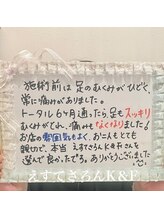 施術前は足のむくみがひどく、
常に痛みがありました。
トータル6ヶ月通ったら、足もスッキリ
むくみがとれ、痛みもなくなりました!
お店の雰囲気もよく、おこんもとても
親切で、本当えすてさろんK&Fさんを
選んで良かったです。ありがとうございました。
えすてさろんK&F